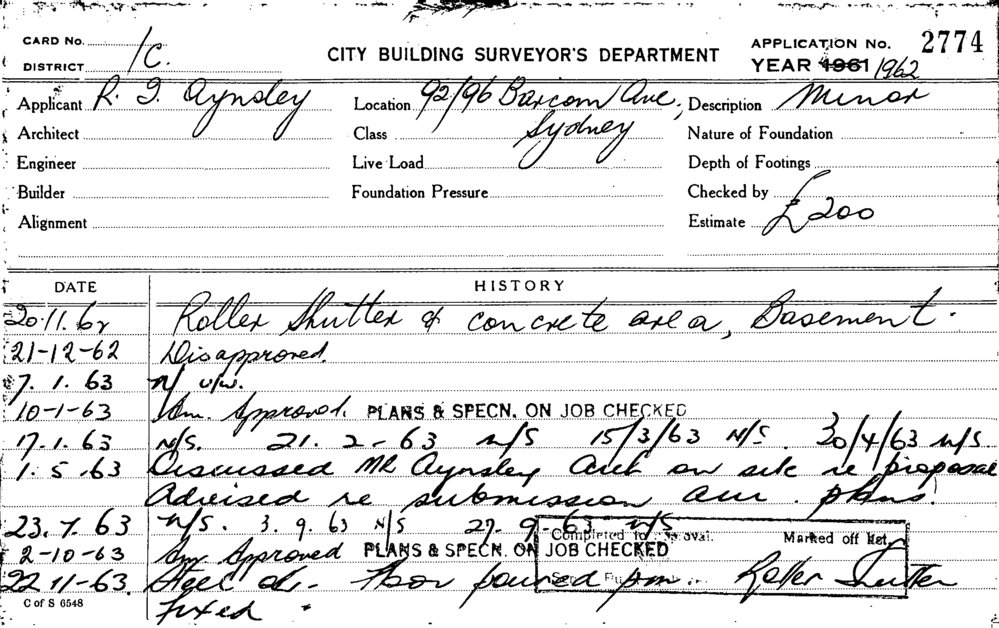 CARD No. 1C.
DISTRICT
CITY BUILDING SURVEYOR'S DEPARTMENT
APPLICATION No. 2774
YEAR 1961 1962
Applicant R. I. Aynsley
Location 92/96 Barcom Ave, Sydney
Description Minor
Architect
Class
Nature of Foundation
Engineer
Live Load
Depth of Footings
Builder
Foundation Pressure
Checked by
Alignment
Estimate £200
DATE HISTORY
20.11.62 Roller Shutter & concrete area, Basement.
21-12-62 Disapproved.
7.1.63 n/ u/w.
10-1-63 Am. Approval. PLANS & SPECN. ON JOB CHECKED
17.1.63 N/S. 21.2-63 n/S 15/3/63 N/S. 30/4/63 n/S
1.5.63 Discussed MR Aynsley Arch on site re proposal
Advised re submission am. plans.
23.7.63 n/S. 3.9.63 N/S 27.9-63 n/S
Completed to Approval. Marked off list
2-10-63 Am Approved PLANS & SPECN. ON JOB CHECKED
22 11-63. Steel ok. floor poured pm. Roller Shutter
C of S 6548
fixed.